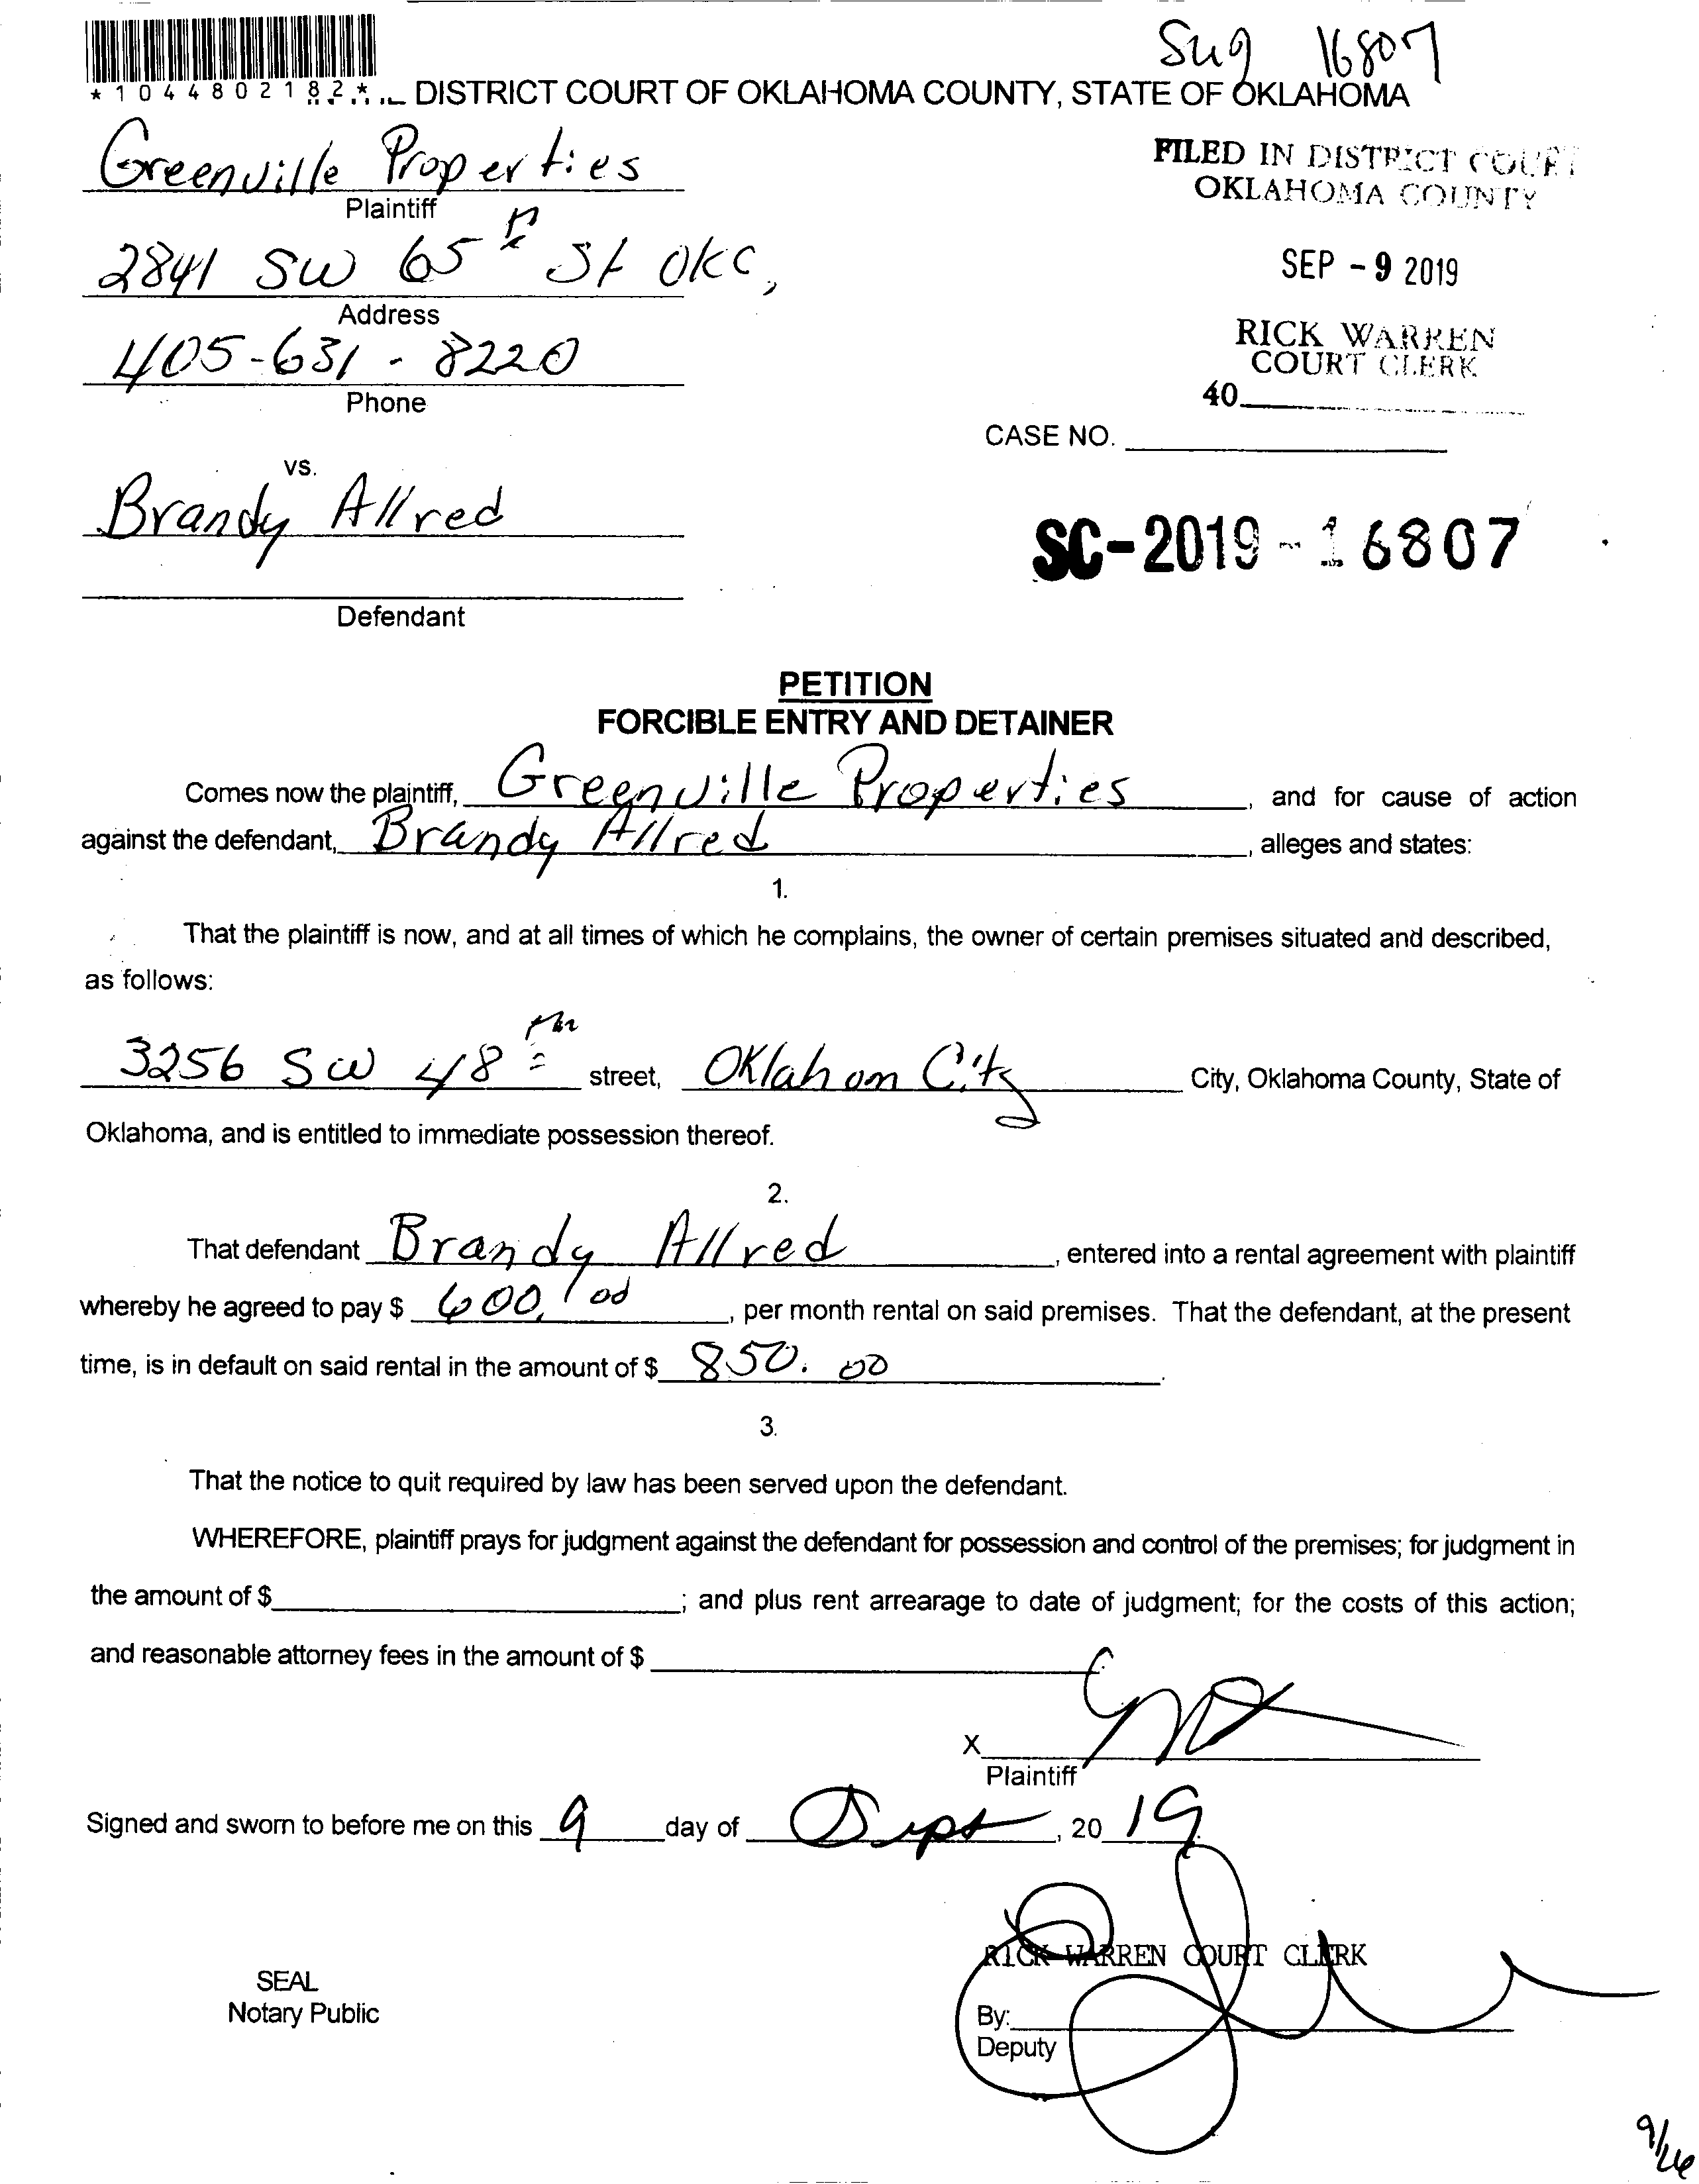 Sug 16807
*1044802182*
DISTRICT COURT OF OKLAHOMA COUNTY, STATE OF OKLAHOMA
Greenville Properties
Plaintiff
FILED IN DISTRICT COURT
OKLAHOMA COUNTY
2841 SW 65th St OKC,
Address
SEP - 9 2019
405-631-8220
Phone
RICK WARREN
COURT CLERK
40
CASE NO.
vs.
Brandy Allred
SC-2019-16807
Defendant
PETITION
FORCIBLE ENTRY AND DETAINER
Comes now the plaintiff, Greenville Properties, and for cause of action
against the defendant, Brandy Allred, alleges and states:
1.
That the plaintiff is now, and at all times of which he complains, the owner of certain premises situated and described,
as follows:
3256 SW 48th street, Oklahom City City, Oklahoma County, State of
Oklahoma, and is entitled to immediate possession thereof.
2.
That defendant Brandy Allred, entered into a rental agreement with plaintiff
whereby he agreed to pay $ 600./00, per month rental on said premises. That the defendant, at the present
time, is in default on said rental in the amount of $ 850.00.
3.
That the notice to quit required by law has been served upon the defendant.
WHEREFORE, plaintiff prays for judgment against the defendant for possession and control of the premises; for judgment in
the amount of $ ; and plus rent arrearage to date of judgment; for the costs of this action;
and reasonable attorney fees in the amount of $
X
Plaintiff
Signed and sworn to before me on this 9 day of Sept, 2019.
RICK WARREN COURT CLERK
SEAL
Notary Public
By:
Deputy
9/26